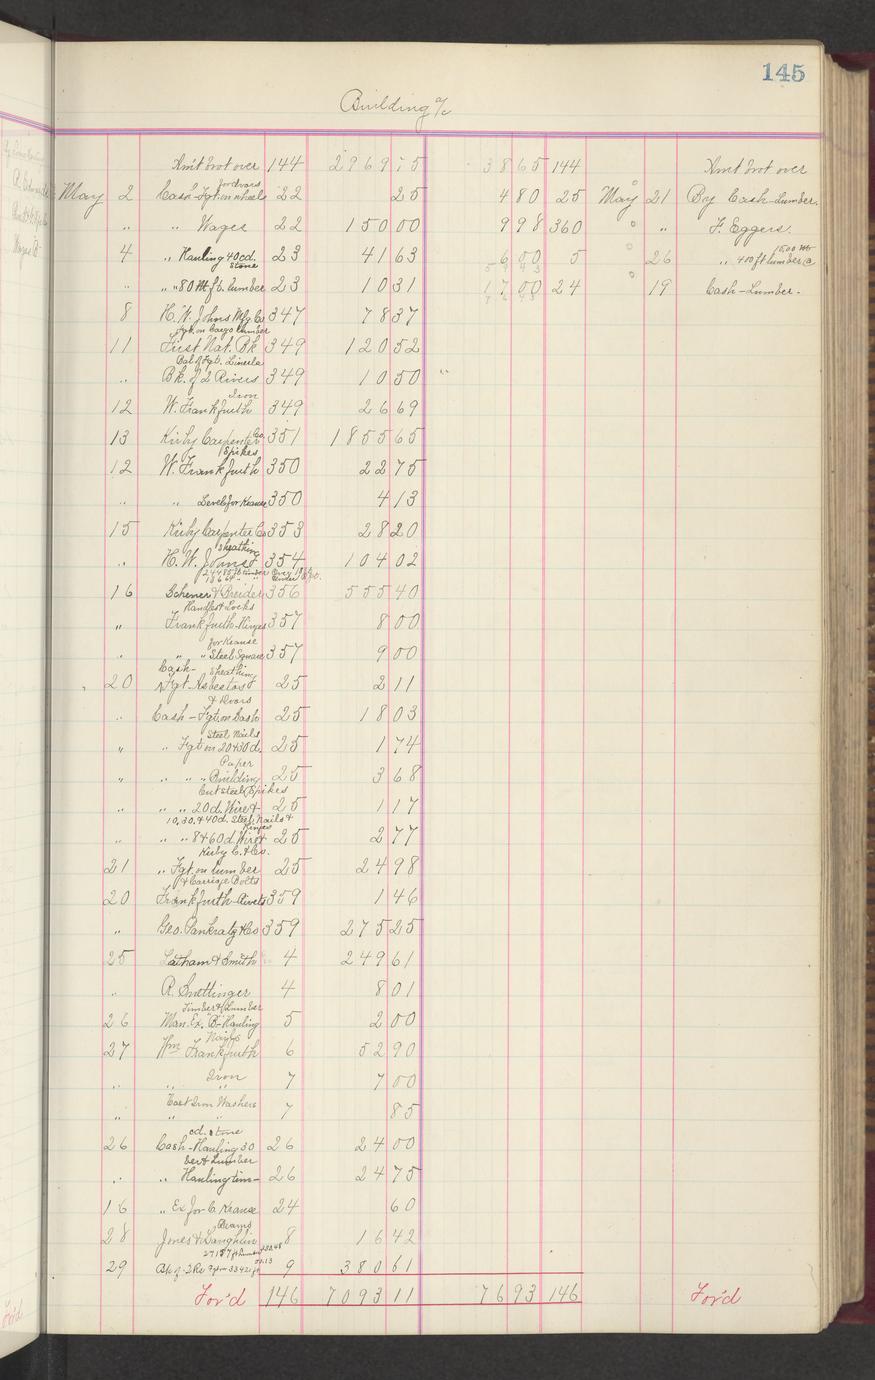 145
Building a/c
Am't brot over 144 2969 75 38 65 144 Am't brot over
for doors
May 2 Cash - Fgt. on wheels 22 25 4 80 25 May 21 By Cash - Lumber.
" " Wages 22 150 00 9 98 360 " F. Eggers.
4 " Hauling 40 cd. 23 41 63 6 00 5 26 " 400 ft lumber @
Stone
" " 80 M ft. lumber 23 10 31 17 00 24 19 Cash - Lumber.
8 H. W. Johns Mfg Co 347 78 37
Fgt. on Cargo Lumber
11 First Nat. Bk 349 120 52
Bal of Fgt.
" Bk. of 2 Rivers 349 10 50 "
Iron
12 W. Frankfurth 349 26 69
13 Kirby Carpenter Co. 351 1855 65
Spikes
12 W. Frankfurth 350 22 75
" " Level for Krause 350 4 13
15 Kirby Carpenter Co 353 28 20
Sheathing
" H. W. Johns 354 104 02
16 Schener & Breider 356 555 40
Handles & Locks
" Frankfurth - Hinges 357 8 00
for Krause
" " " Steel Square 357 9 00
Cash - Sheathing
20 Fgt. Asbestos 25 2 11
& Doors
" Cash - Fgt. on Sash 25 18 03
Steel Nails
" " Fgt on 20 & 30 d. 25 1 74
Paper
" " " " Building 25 3 68
Cut steel Spikes
" " " 20 d. Wire & 25 1 17
10, 30, & 40 d. Steel Nails &
Hinges
" " " 8 & 60 d. Wire & 25 2 77
Kirby C. & Co.
21 " Fgt. on lumber 25 24 98
& Carriage Bolts
20 Frankfurth - Rivets 359 1 46
" Geo. Pankratz & Co 359 275 25
25 Latham & Smith 4 249 61
" R. Suettinger 4 8 01
Timber & Lumber
26 Man. Ex. "B" - Hauling 5 2 00
Nails
27 Wm Frankfurth 6 52 90
" " Iron " 7 7 00
Cast Iron Washers
" " " 7 85
cd. stone
26 Cash - Hauling 30 26 24 00
ber & Lumber
" " Hauling tim- 26 24 75
16 " Ex for C. Krause 24 60
Beams
28 Jones & Laughlin 8 16 42
29 Bk of 2 Rs 9 380 61
For'd 146 7093 11 76 93 146 For'd